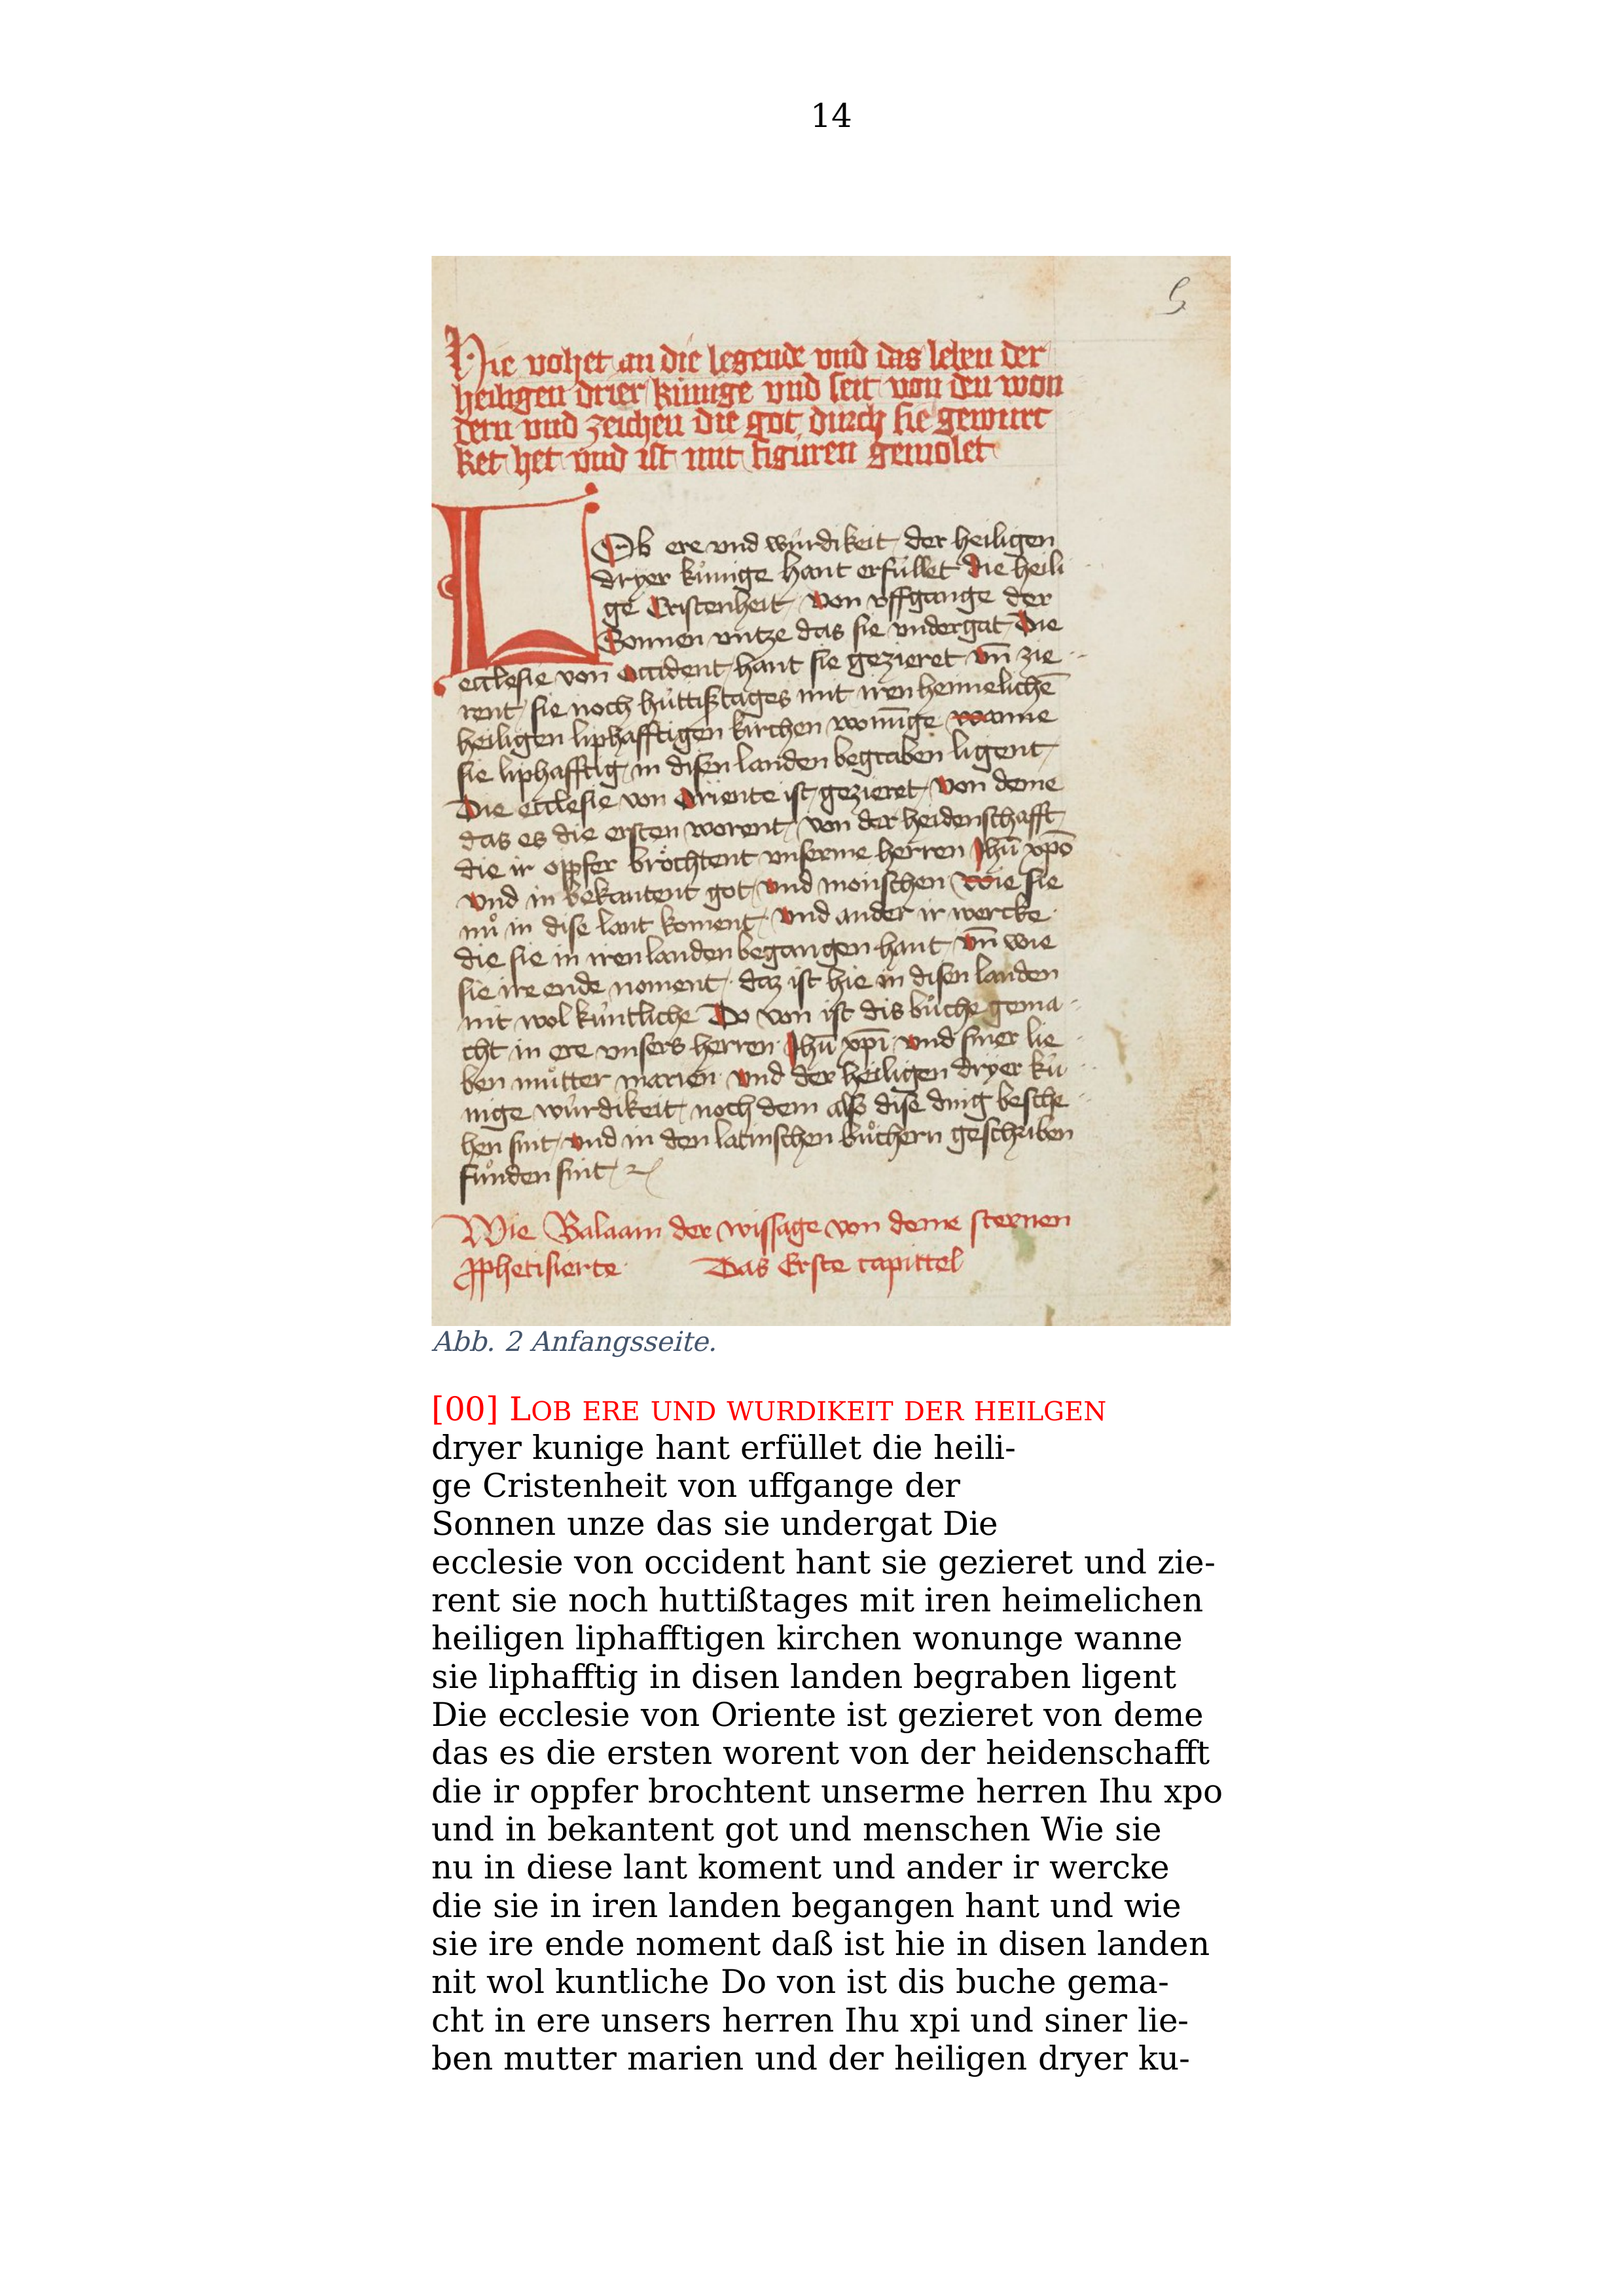 14
5
Hie vohet an die legende vnd das leben der
heiligen drier künige vnd seit von den won
dern vnd zeichen die got durch sie gewürc
ket het vnd ist mit figuren gemolet
LOb ere vnd würdikeit der heiligen
dryer kůnige hant erfüllet die heili
ge Cristenheit von vffgange der
Sonnen vntze das sie vndergat Die
ecclesie von occident hant sie gezieret vn̄ zie
rent sie noch hüttißtages mit iren heimelichē
heiligen liphafftigen kirchen wonūge wanne
sie liphafftig in disen landen begraben ligent
Die ecclesie von Oriente ist gezieret von deme
das es die ersten worent von der heidenschafft
die ir oppfer bröchtent vnserme herren Jhū xpō
vnd in bekantent got vnd monschen Wie sie
nů in dise lant koment vnd ander ir wercke
die sie in iren landen begangen hant vn̄ wie
sie ire ende noment daz ist hie in disen landen
nit wol küntliche Do von ist dis bůche gema
cht in ere vnsers herren Jhū xpī vnd siner lie
ben můtter marien vnd der heiligen dryer kü
nige würdikeit noch dem also dise ding besche
hen sint vnd in den latinschen bůchern geschriben
funden sint
Wie Balaam der wissage von deme sternen
pphetisierte Das Erste capittel
Abb. 2 Anfangsseite.
[00] LOB ERE UND WURDIKEIT DER HEILGEN
dryer kunige hant erfüllet die heili-
ge Cristenheit von uffgange der
Sonnen unze das sie undergat Die
ecclesie von occident hant sie gezieret und zie-
rent sie noch huttißtages mit iren heimelichen
heiligen liphafftigen kirchen wonunge wanne
sie liphafftig in disen landen begraben ligent
Die ecclesie von Oriente ist gezieret von deme
das es die ersten worent von der heidenschafft
die ir oppfer brochtent unserme herren Ihu xpo
und in bekantent got und menschen Wie sie
nu in diese lant koment und ander ir wercke
die sie in iren landen begangen hant und wie
sie ire ende noment daß ist hie in disen landen
nit wol kuntliche Do von ist dis buche gema-
cht in ere unsers herren Ihu xpi und siner lie-
ben mutter marien und der heiligen dryer ku-